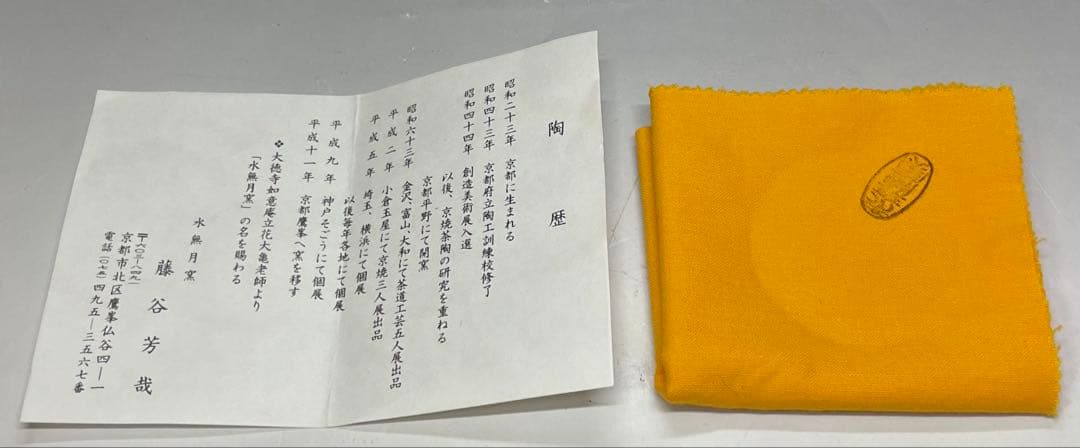 陶歴
昭和二十三年 京都に生まれる
昭和四十三年 京都府立陶工訓練校修了
昭和四十四年 創造美術展入選
以後、京焼茶陶の研究を重ねる
京都平野にて開窯
昭和六十三年 金沢、富山、大和にて茶道工芸五人展出品
平成二年 小倉玉屋にて京焼三人展出品
平成五年 埼玉、横浜にて個展
以後毎年各地にて個展
平成九年 神戸そごうにて個展
平成十一年 京都鷹峯へ窯を移す
❖ 大徳寺如意庵立花大亀老師より
「水無月窯」の名を賜わる
水無月窯
藤谷芳哉
〒六〇三―八四九一
京都市北区鷹峯仏谷四―一
電話(〇七五)四九五―三五六七番